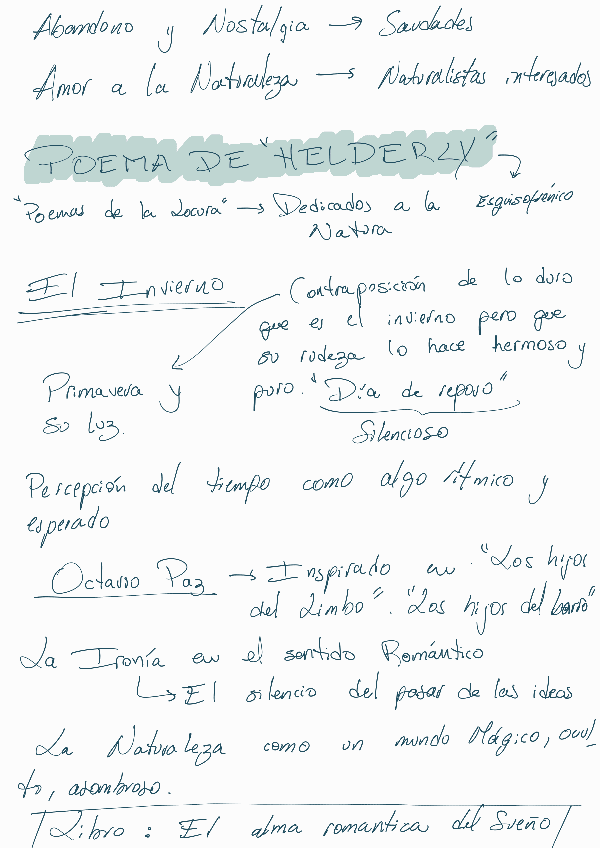 Abandono y Nostalgia → Saudades
Amor a la Naturaleza → Naturalistas interesados
POEMA DE "HELDERLY"
"Poemas de la Locura" → Dedicados a la Esquisofrénico
Natura
El Invierno
Contraposición de lo duro
que es el invierno pero que
su rudeza lo hace hermoso y
puro. "Día de reposo"
Silencioso
Primavera y
su luz.
Percepción del tiempo como algo rítmico y
esperado
Octavio Paz → Inspirado en "Los hijos
del Limbo". "Los hijos del barro"
La Ironía en el sentido Romántico
↳ El silencio del pasar de las ideas
La Naturaleza como un mundo Mágico, ocul
to, asombroso.
Libro: El alma romantica del Sueño